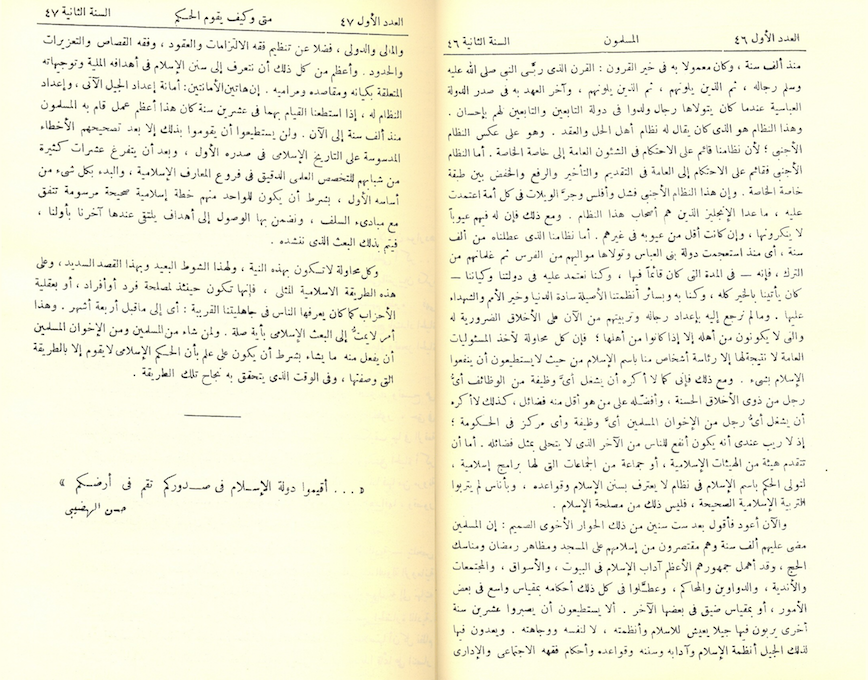 العدد الأول ٤٦
المسلمون
السنة الثانية ٤٦
منذ ألف سنة ، وكان معمولا به فى خير القرون : القرن الذى ربَّى النبى صلى الله عليه
وسلم رجاله ، ثم الذين يلونهم ، ثم الذين يلونهم ، وآخر العهد به فى صدر الدولة
العباسية عندما كان يتولاها رجال ولدوا فى دولة التابعين والتابعين لهم بإحسان .
وهذا النظام هو الذى كان يقال له نظام أهل الحل والعقد . وهو على عكس النظام
الأجنبى ؛ لأن نظامنا قائم على الاحتكام فى الشئون العامة إلى خاصة الخاصة . أما النظام
الأجنبى فقائم على الاحتكام إلى العامة فى التقديم والتأخير والرفع والخفض بين طبقة
خاصة الخاصة . وإن هذا النظام الأجنبى فشل وأفلس وجرَّ الويلات فى كل أمة اعتمدت
عليه ، ما عدا الإنجليز الذين هم أصحاب هذا النظام . ومع ذلك فإن له فيهم عيوباً
لا ينكرونها ، وإن كانت أقل من عيوبه فى غيرهم . أما نظامنا الذى عطلناه من ألف
سنة ، أى منذ استعجمت دولة بنى العباس وتولاها مواليهم من الفرس ثم غلمانهم من
الترك ، فإنه — فى المدة التى كان قائماً فيها ، وكنا نعتمد عليه فى دولتنا وكياننا —
كان يأتينا بالخير كله ، وكنا به وبسائر أنظمتنا الأصيلة سادة الدنيا وخير الأمم والشهداء
عليها . ومالم نرجع إليه بإعداد رجاله وتربيتهم من الآن على الأخلاق الضرورية له
والتى لا يكونون من أهله إلا إذا كانوا من أهلها ؛ فإن كل محاولة لأخذ المسئوليات
العامة لا نتيجة لها إلا رئاسة أشخاص منا باسم الإسلام من حيث لا يستطيعون أن ينفعوا
الإسلام بشىء . ومع ذلك فإنى كما لا أكره أن يشغل أىَّ وظيفة من الوظائف أىُّ
رجل من ذوى الأخلاق الحسنة ، وأفضّله على من هو أقل منه فضائل ، كذلك لا أكره
أن يشغل أىُّ رجل من الإخوان المسلمين أىَّ وظيفة وأى مركز فى الحكومة ؛
إذ لا ريب عندى أنه يكون أنفع للناس من الآخر الذى لا يتحلى بمثل فضائله . أما أن
تتقدم هيئة من الهيئات الإسلامية ، أو جماعة من الجماعات التى لها برامج إسلامية ،
لتولى الحكم باسم الإسلام فى نظام لا يعترف بسنن الإسلام وقواعده ، وبأناس لم يتربوا
التربية الإسلامية الصحيحة ، فليس ذلك من مصلحة الإسلام .
والآن أعود فأقول بعد ست سنين من ذلك الحوار الأخوى الصميم : إن المسلمين
مضى عليهم ألف سنة وهم مقتصرون من إسلامهم على المسجد ومظاهر رمضان ومناسك
الحج ، وقد أهمل جمهورهم الأعظم آداب الإسلام فى البيوت ، والأسواق ، والمجتمعات
والأندية ، والدواوين والمحاكم ، وعطّلوا فى كل ذلك أحكامه بمقياس واسع فى بعض
الأمور ، أو بمقياس ضيق فى بعضها الآخر . ألا يستطيعون أن يصبروا عشرين سنة
أخرى يربون فيها جيلا يعيش للاسلام وأنظمته ، لا لنفسه ووجاهته . ويعدون فيها
لذلك الجيل أنظمة الإسلام وآدابه وسننه وقواعده وأحكام فقهه الاجتماعى والإدارى
العدد الأول ٤٧
متى وكيف يقوم الحكم
السنة الثانية ٤٧
والمالى والدولى ، فضلا عن تنظيم فقه الالتزامات والعقود ، وفقه القصاص والتعزيرات
والحدود . وأعظم من كل ذلك أن نتعرف إلى سنن الإسلام فى أهدافه الملية وتوجيهاته
المتعلقة بكيانه ومقاصده ومراميه . إن هاتين الأمانتين : أمانة إعداد الجيل الآتى ، وإعداد
النظام له ، إذا استطعنا القيام بهما فى عشرين سنة كان هذا أعظم عمل قام به المسلمون
منذ ألف سنة إلى الآن . ولن يستطيعوا أن يقوموا بذلك إلا بعد تصحيحهم الأخطاء
المدسوسة على التاريخ الإسلامى فى صدره الأول ، وبعد أن يتفرغ عشرات كثيرة
من شبابهم للتخصص العلمى الدقيق فى فروع المعارف الإسلامية ، والبدء بكل شىء من
أساسه الأول ، بشرط أن يكون للواحد منهم خطة إسلامية صحيحة مرسومة تتفق
مع مبادىء السلف ، ونضمن بها الوصول إلى أهداف يلتقى عندها آخرنا بأولنا ،
فيتم بذلك البعث الذى ننشده .
وكل محاولة لا تكون بهذه النية ، ولهذا الشوط البعيد وبهذا القصد السديد ، وعلى
هذه الطريقة الاسلامية المثلى ، فإنها تكون حينئذ لمصلحة فرد أو أفراد ، أو بعقلية
الأحزاب كما كان يعرفها الناس فى جاهليتنا القريبة : أى إلى ماقبل أربعة أشهر . وهذا
أمر لا يمتُّ إلى البعث الإسلامى بأية صلة . ولمن شاء من المسلمين ومن الإخوان المسلمين
أن يفعل منه ما يشاء بشرط أن يكون على علم بأن الحكم الإسلامى لا يقوم إلا بالطريقة
التى وصفتها ، وفى الوقت الذى يتحقق به نجاح تلك الطريقة .
« . . . أقيموا دولة الإسلام فى صدوركم تقم فى أرضكم »
حسن الهضيبى